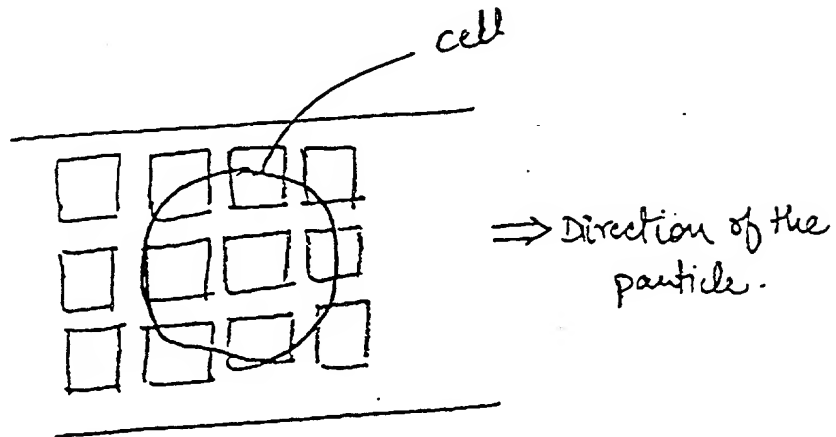 cell
⇒ Direction of the
particle.